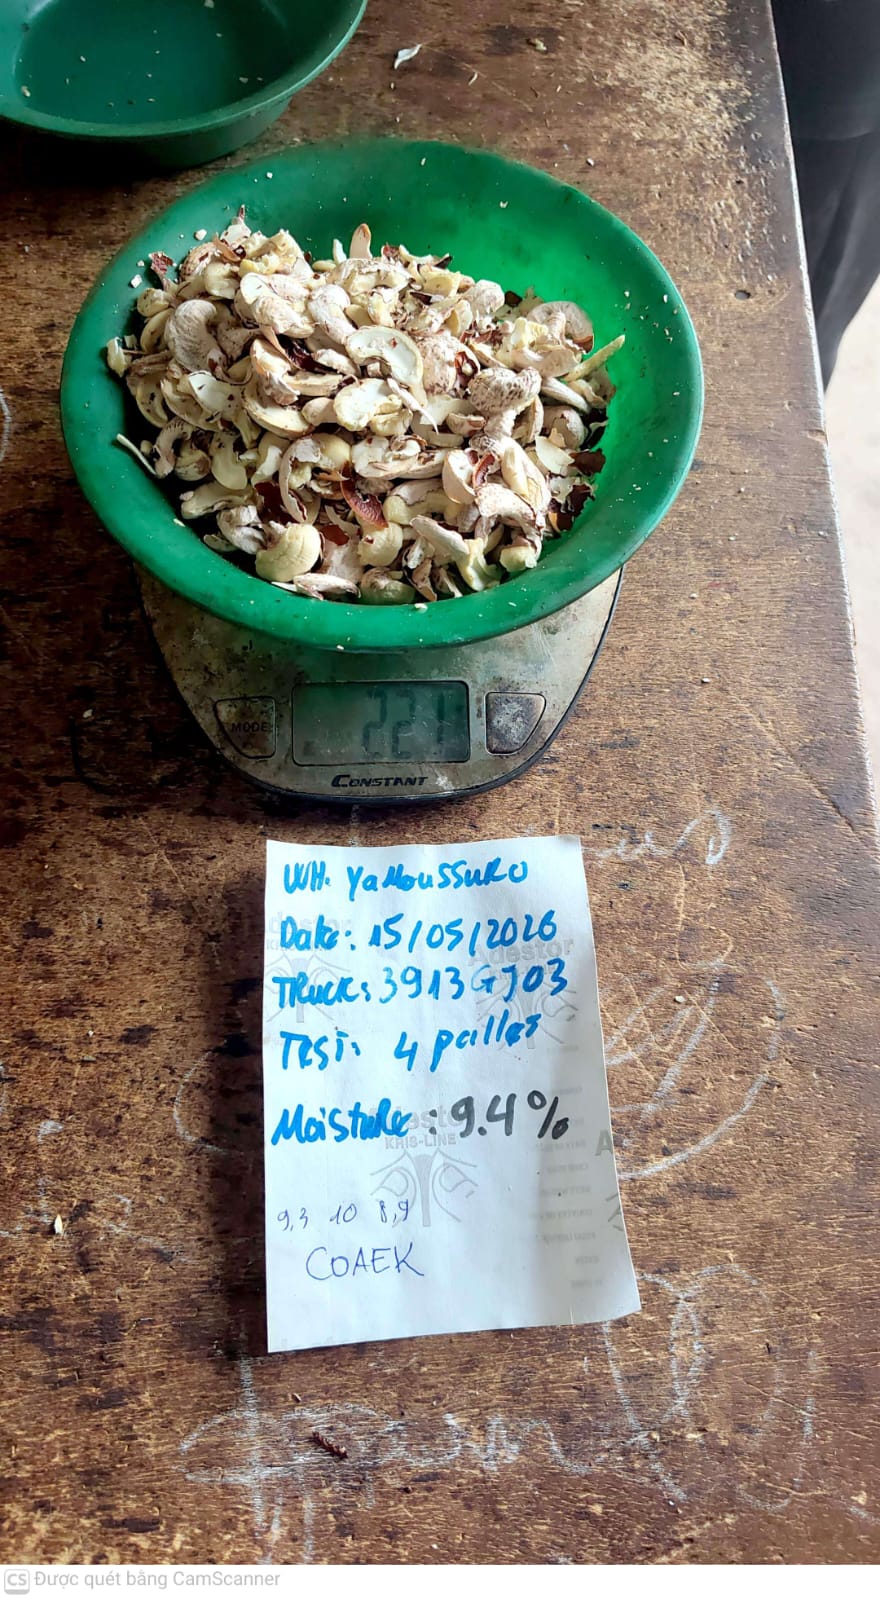 MODE
221
CONSTANT
WH. YaMoussuRo
Date: 15/05/2026
TRuck: 3913GJ03
TEST: 4 palles
Moisture: 9.4%
Adestor
KRIS-LINE
9,3 10 8,9
COAEK
CS Được quét bằng CamScanner